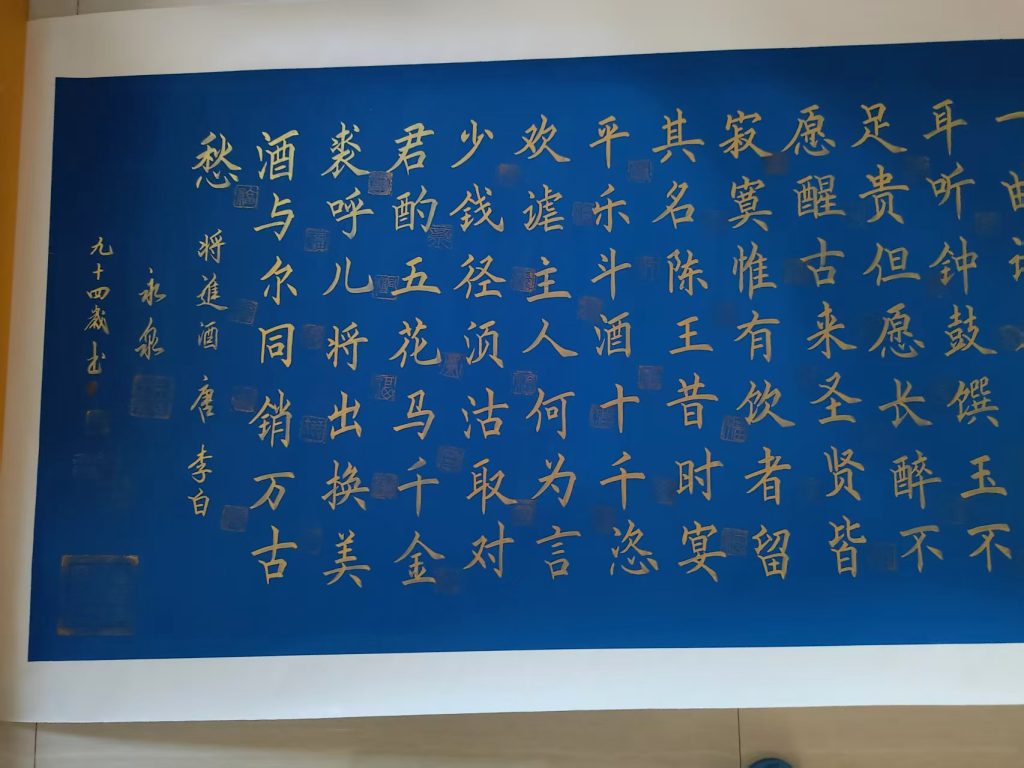 一曲
耳听钟鼓馔玉不
足贵但愿长醉不
愿醒古来圣贤皆
寂寞惟有饮者留
其名陈王昔时宴
平乐斗酒十千恣
欢谑主人何为言
少钱径须沽取对
君酌五花马千金
裘呼儿将出换美
酒与尔同销万古
愁
将進酒 唐 李白
永泉
九十四歲书